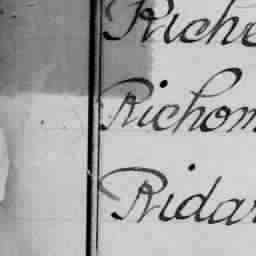 Riche
Richom
Ridar